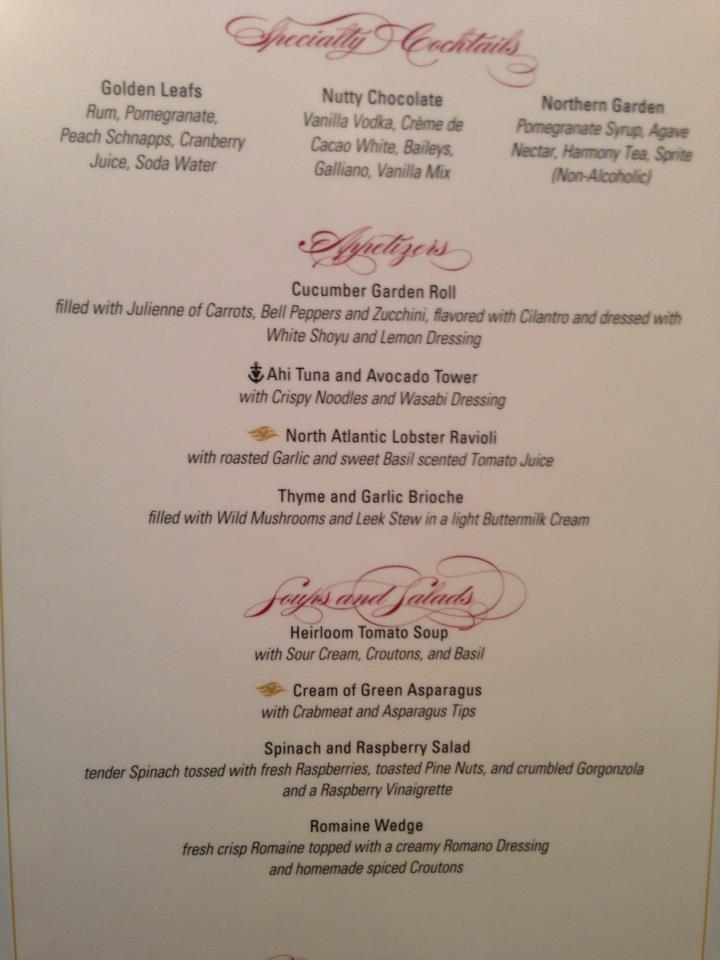 Specialty Cocktails
Golden Leafs
Rum, Pomegranate,
Peach Schnapps, Cranberry
Juice, Soda Water
Nutty Chocolate
Vanilla Vodka, Crème de
Cacao White, Baileys,
Galliano, Vanilla Mix
Northern Garden
Pomegranate Syrup, Agave
Nectar, Harmony Tea, Sprite
(Non-Alcoholic)
Appetizers
Cucumber Garden Roll
filled with Julienne of Carrots, Bell Peppers and Zucchini, flavored with Cilantro and dressed with
White Shoyu and Lemon Dressing
Ahi Tuna and Avocado Tower
with Crispy Noodles and Wasabi Dressing
North Atlantic Lobster Ravioli
with roasted Garlic and sweet Basil scented Tomato Juice
Thyme and Garlic Brioche
filled with Wild Mushrooms and Leek Stew in a light Buttermilk Cream
Soups and Salads
Heirloom Tomato Soup
with Sour Cream, Croutons, and Basil
Cream of Green Asparagus
with Crabmeat and Asparagus Tips
Spinach and Raspberry Salad
tender Spinach tossed with fresh Raspberries, toasted Pine Nuts, and crumbled Gorgonzola
and a Raspberry Vinaigrette
Romaine Wedge
fresh crisp Romaine topped with a creamy Romano Dressing
and homemade spiced Croutons